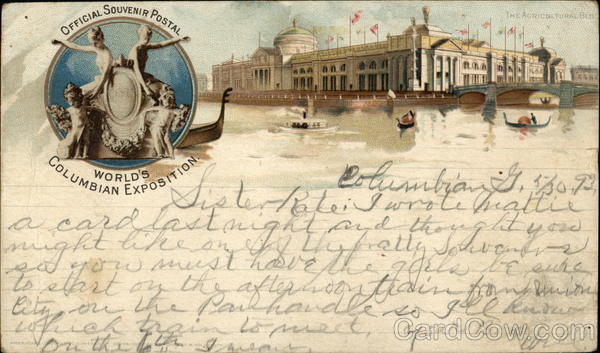 OFFICIAL SOUVENIR POSTAL
THE AGRICULTURAL BLD
WORLD'S
COLUMBIAN EXPOSITION
Columbian G. 5/30, 93
Sister Kate: I wrote Mattie
a card last night and thought you
might like one of the pretty
so you must have the girls be sure
to start on the afternoon train from Union
City on the Panhandle so I'll know
which train to meet.
On the 6th I mean.
CardCow.com